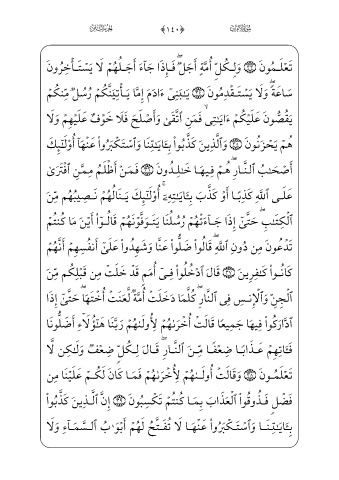 سورة الأعراف
﴿١٤٠﴾
الجزء الثامن
تَعْلَمُونَ ۝ وَلِكُلِّ أُمَّةٍ أَجَلٌ ۖ فَإِذَا جَآءَ أَجَلُهُمْ لَا يَسْتَأْخِرُونَ
سَاعَةً ۖ وَلَا يَسْتَقْدِمُونَ ۝ يَٰبَنِىٓ ءَادَمَ إِمَّا يَأْتِيَنَّكُمْ رُسُلٌ مِّنكُمْ
يَقُصُّونَ عَلَيْكُمْ ءَايَٰتِى ۙ فَمَنِ ٱتَّقَىٰ وَأَصْلَحَ فَلَا خَوْفٌ عَلَيْهِمْ وَلَا
هُمْ يَحْزَنُونَ ۝ وَٱلَّذِينَ كَذَّبُوا۟ بِـَٔايَٰتِنَا وَٱسْتَكْبَرُوا۟ عَنْهَآ أُو۟لَٰٓئِكَ
أَصْحَٰبُ ٱلنَّارِ ۖ هُمْ فِيهَا خَٰلِدُونَ ۝ فَمَنْ أَظْلَمُ مِمَّنِ ٱفْتَرَىٰ
عَلَى ٱللَّهِ كَذِبًا أَوْ كَذَّبَ بِـَٔايَٰتِهِۦٓ ۚ أُو۟لَٰٓئِكَ يَنَالُهُمْ نَصِيبُهُم مِّنَ
ٱلْكِتَٰبِ ۖ حَتَّىٰٓ إِذَا جَآءَتْهُمْ رُسُلُنَا يَتَوَفَّوْنَهُمْ قَالُوٓا۟ أَيْنَ مَا كُنتُمْ
تَدْعُونَ مِن دُونِ ٱللَّهِ ۖ قَالُوا۟ ضَلُّوا۟ عَنَّا وَشَهِدُوا۟ عَلَىٰٓ أَنفُسِهِمْ أَنَّهُمْ
كَانُوا۟ كَٰفِرِينَ ۝ قَالَ ٱدْخُلُوا۟ فِىٓ أُمَمٍ قَدْ خَلَتْ مِن قَبْلِكُم مِّنَ
ٱلْجِنِّ وَٱلْإِنسِ فِى ٱلنَّارِ ۖ كُلَّمَا دَخَلَتْ أُمَّةٌ لَّعَنَتْ أُخْتَهَا ۖ حَتَّىٰٓ إِذَا
ٱدَّارَكُوا۟ فِيهَا جَمِيعًا قَالَتْ أُخْرَىٰهُمْ لِأُولَىٰهُمْ رَبَّنَا هَٰٓؤُلَآءِ أَضَلُّونَا
فَـَٔاتِهِمْ عَذَابًا ضِعْفًا مِّنَ ٱلنَّارِ ۖ قَالَ لِكُلٍّ ضِعْفٌ وَلَٰكِن لَّا
تَعْلَمُونَ ۝ وَقَالَتْ أُولَىٰهُمْ لِأُخْرَىٰهُمْ فَمَا كَانَ لَكُمْ عَلَيْنَا مِن
فَضْلٍ فَذُوقُوا۟ ٱلْعَذَابَ بِمَا كُنتُمْ تَكْسِبُونَ ۝ إِنَّ ٱلَّذِينَ كَذَّبُوا۟
بِـَٔايَٰتِنَا وَٱسْتَكْبَرُوا۟ عَنْهَا لَا تُفَتَّحُ لَهُمْ أَبْوَٰبُ ٱلسَّمَآءِ وَلَا